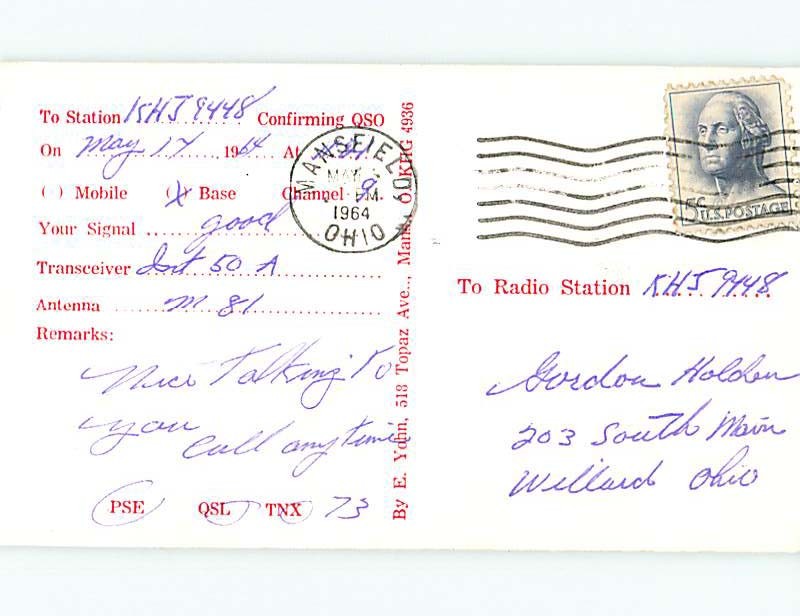 To Station KHJ 9448 Confirming QSO
On May 17 1964 At
( ) Mobile (X) Base Channel 9.
Your Signal good
Transceiver Int 50 A
Antenna M 81
Remarks:
Nice Talking To
you
call anytime
PSE QSL TNX 73
By E. Yohn, 518 Topaz Ave., Mans. O. KHG 4936
MANSFIELD,
MAY
PM
1964
OHIO
5c U.S. POSTAGE
To Radio Station KHJ 9448
Gordon Holden
203 South Main
Willard Ohio